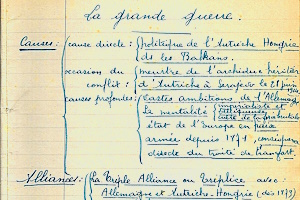 La grande guerre.
Causes: cause directe: politique de l'Autriche Hongrie
ds les Balkans.
occasion du meurtre de l'archiduc héritier
conflit: d'Autriche à Serajevo le 21 juin
causes profondes: vastes ambitions de l'Allemag
la mentalité
état de l'Europe en paix
armée depuis 1871, conséquence
directe du traité de Francfort.
Alliances: La Triple Alliance ou Triplice avec:
Allemagne et Autriche-Hongrie (dès 1879)